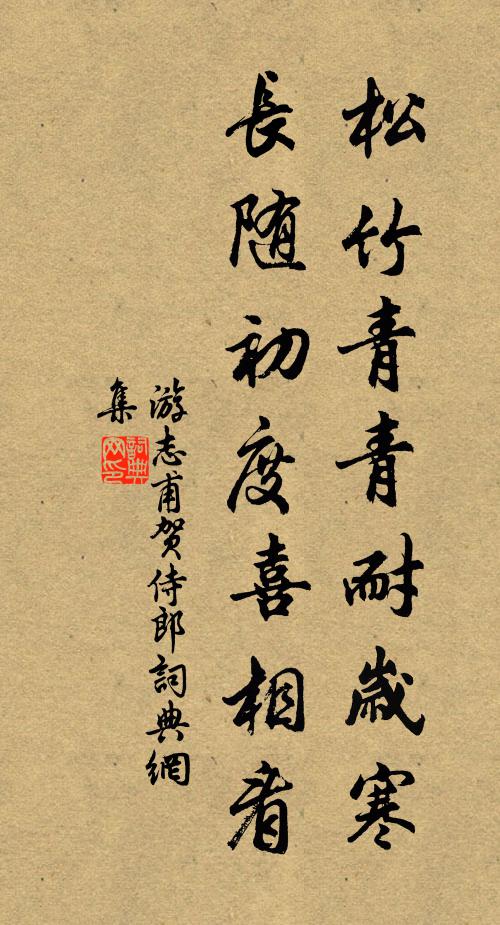 松竹青青耐歲寒
長随初度喜相看
游志甫賀侍郎詞典網
集
詞典网印